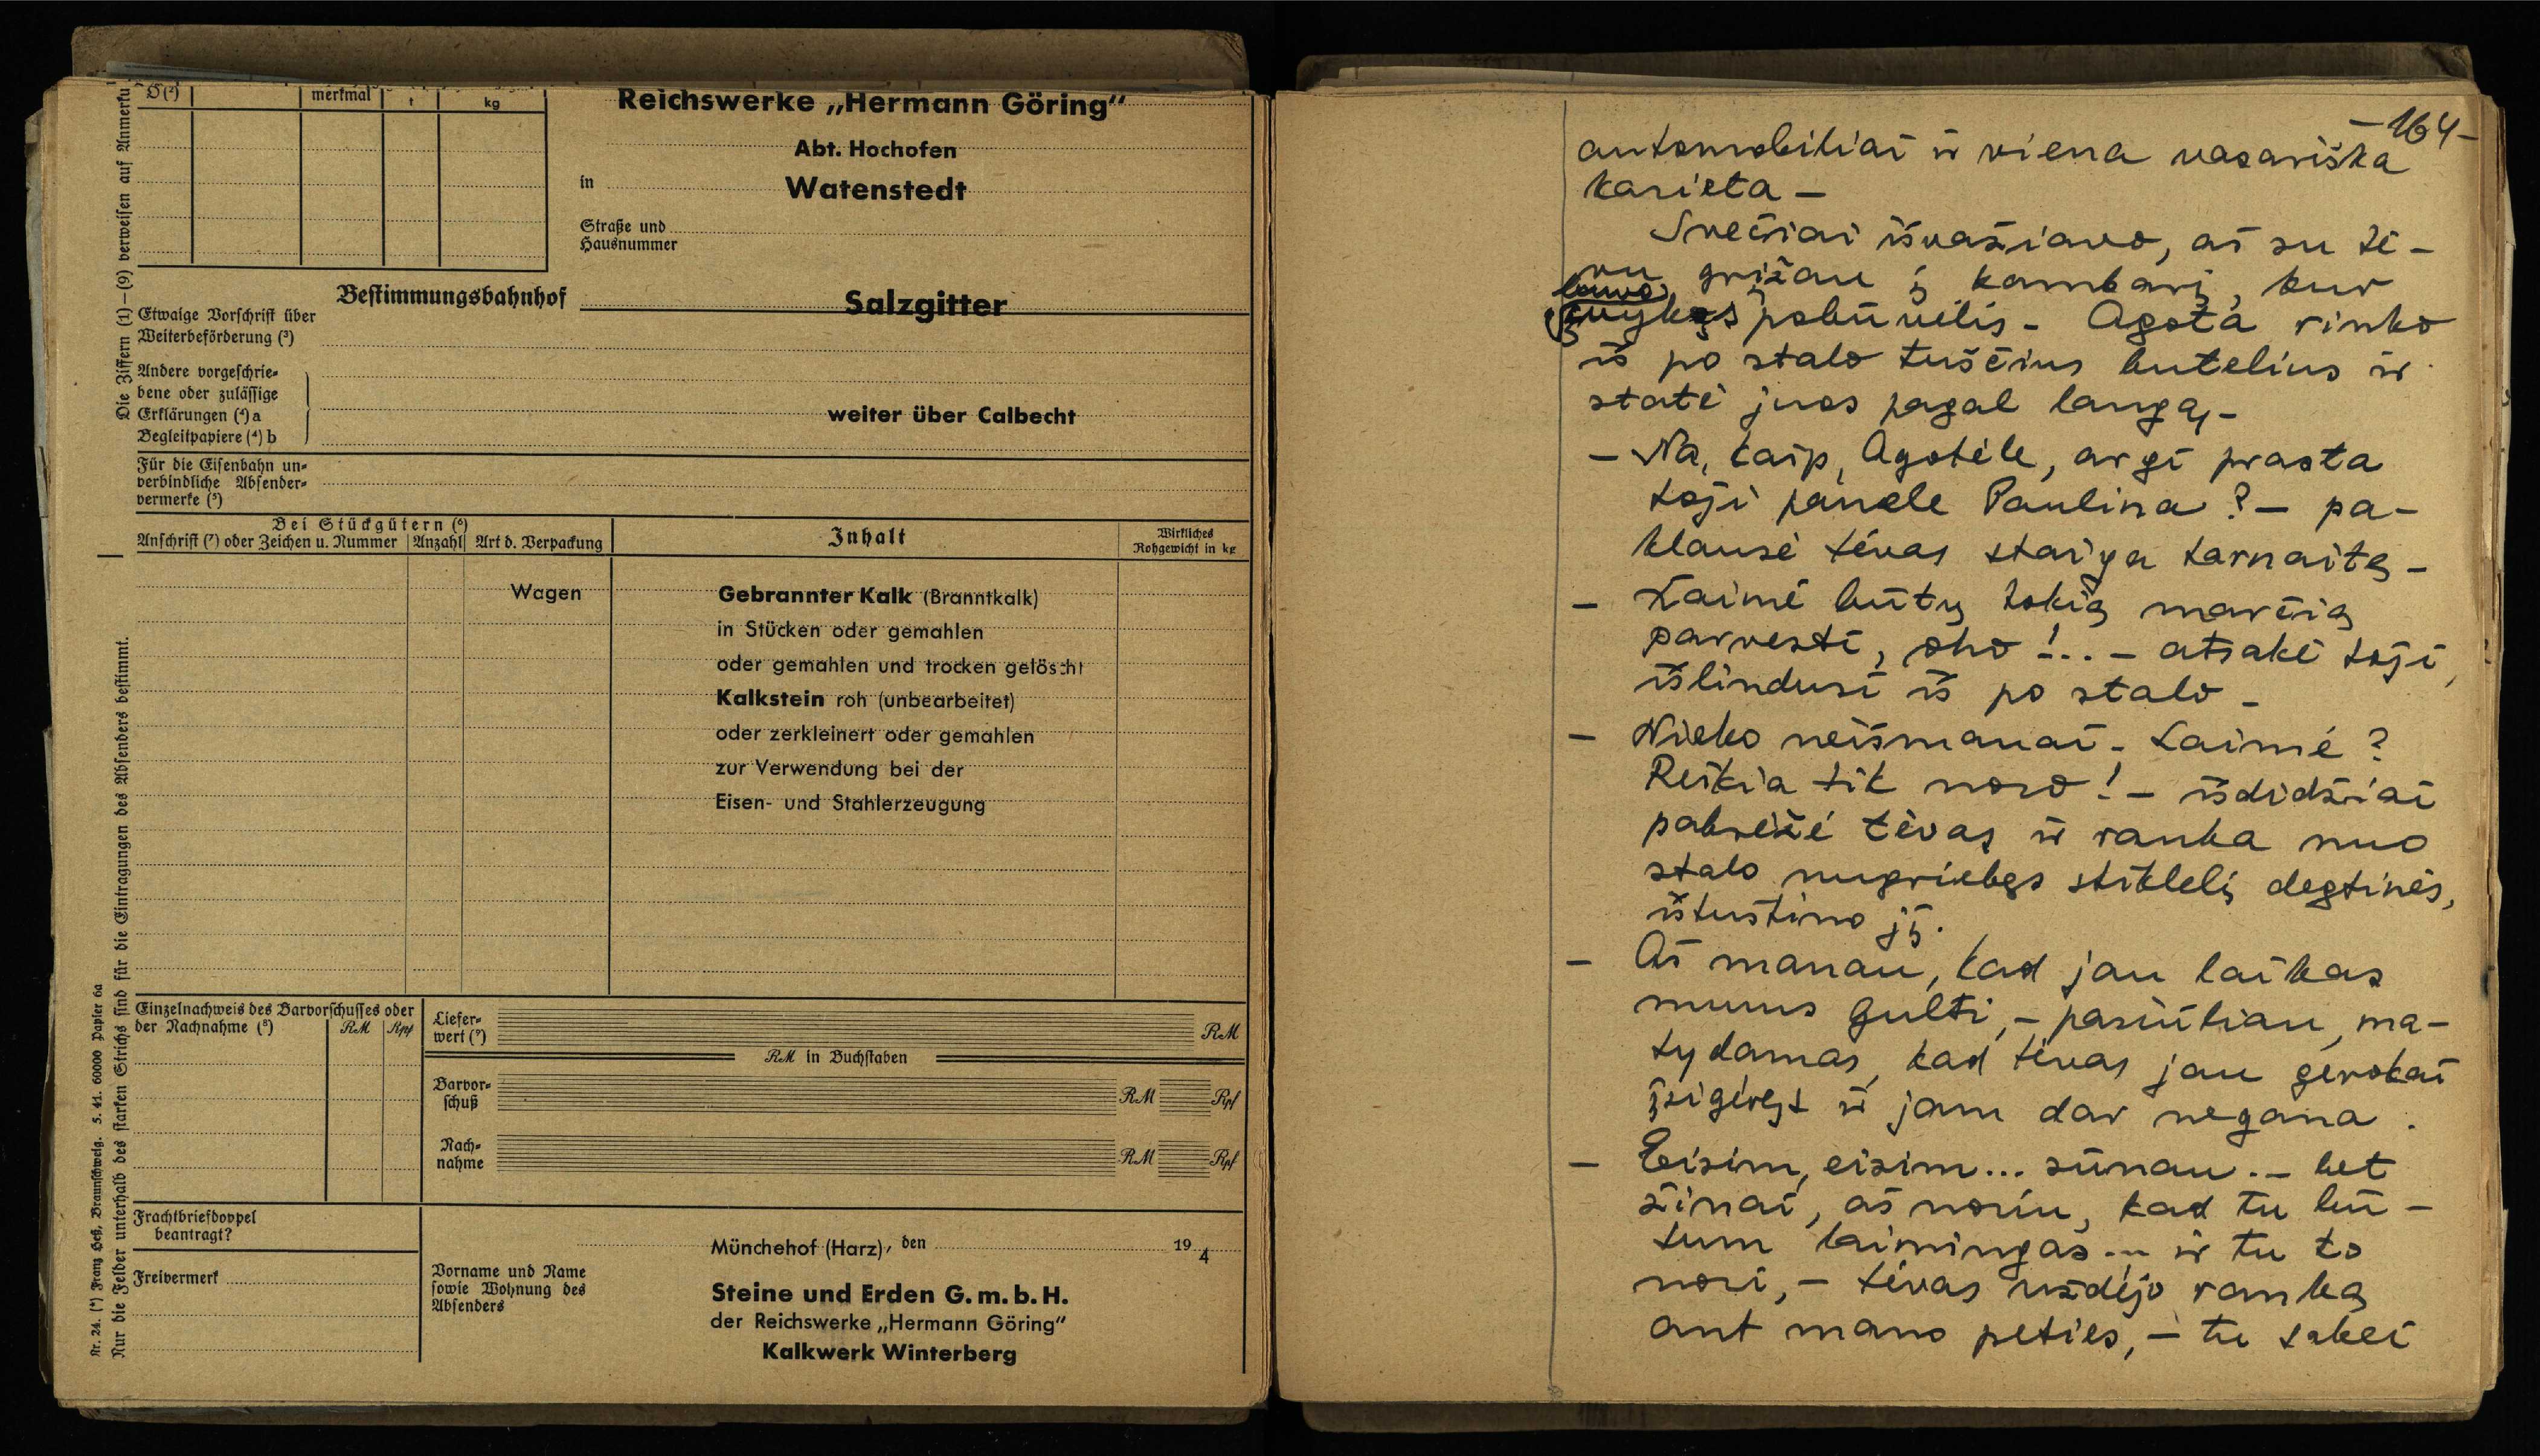 Die Ziffern (1)–(9) verweisen auf Anmerku
merkmal
t
kg
Reichswerke „Hermann Göring“
Abt. Hochofen
in
Watenstedt
Straße und
Hausnummer
Bestimmungsbahnhof
Salzgitter
Etwaige Vorschrift über
Weiterbeförderung (³)
Andere vorgeschrie-
bene oder zulässige
Erklärungen (⁴) a
Begleitpapiere (⁴) b
weiter über Calbecht
Für die Eisenbahn un-
verbindliche Absender-
vermerke (⁵)
Bei Stückgütern (⁶)
Anschrift (⁷) oder Zeichen u. Nummer
Anzahl
Art d. Verpackung
Inhalt
Wirkliches
Rohgewicht in kg
Wagen
Gebrannter Kalk (Branntkalk)
in Stücken oder gemahlen
oder gemahlen und trocken gelöscht
Kalkstein roh (unbearbeitet)
oder zerkleinert oder gemahlen
zur Verwendung bei der
Eisen- und Stahlerzeugung
Nur die Felder unterhalb des starken Strichs sind für die Eintragungen des Absenders bestimmt.
Nr. 24. (*) Franz Heß, Braunschweig. 5. 41. 60000 Papier 6a
Einzelnachweis des Barvorschusses oder
der Nachnahme (⁸)
RM
Rpf
Liefer-
wert (⁹)
RM
RM in Buchstaben
Barvor-
schuß
RM
Rpf
Nach-
nahme
RM
Rpf
Frachtbriefdoppel
beantragt?
Freivermerk
Münchehof (Harz), den
19 4
Vorname und Name
sowie Wohnung des
Absenders
Steine und Erden G.m.b.H.
der Reichswerke „Hermann Göring“
Kalkwerk Winterberg
–164–
automobiliai ir viena vasariška
karieta –
Svečiai išvažiavo, aš su tė-
vu grįžau į kambarį, kur
buvo įvykęs pobūvėlis – Agota rinko
iš po stalo tuščius butelius ir
statė juos pagal langą –
– Na, kaip, Agotėle, argi prasta
toji panelė Paulina? – pa-
klausė tėvas staiga tarnaitę –
– Laimė būtų tokią marčią
parvesti, oho!... – atsakė toji,
išlindusi iš po stalo –
– Nieko neišmanai – Laimė?
Reikia tik noro! – išdidžiai
pabrėžė tėvas ir ranka nuo
stalo nugriebęs stiklelį degtinės,
ištuštino jį.
– Aš manau, kad jau laikas
mums gulti, – pasiūliau, ma-
tydamas, kad tėvas jau gerokai
įsigėręs ir jam dar negana.
– Eisim, eisim... sūnau. – bet
žinai, aš noriu, kad tu bū-
tum laimingas... ir tu to
nori, – tėvas uždėjo ranką
ant mano peties, – tu sakei